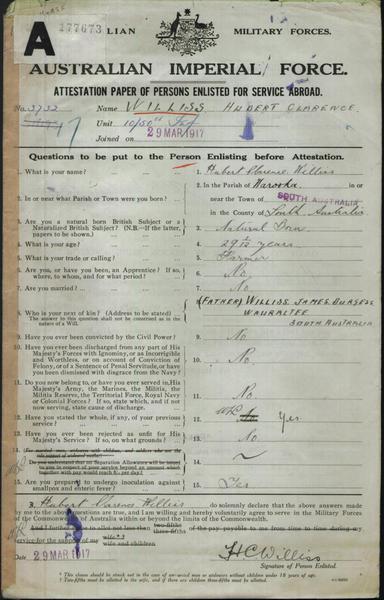 A
177673
LIAN MILITARY FORCES.
AUSTRALIAN IMPERIAL FORCE.
ATTESTATION PAPER OF PERSONS ENLISTED FOR SERVICE ABROAD.
No. 3732 Name WILLISS HUBERT CLARENCE
Unit 10/50th
Joined on 29 MAR 1917
Questions to be put to the Person Enlisting before Attestation.
1. What is your name? 1. Hubert Clarence Williss
2. In or near what Parish or Town were you born? 2. In the Parish of Warooka in or
near the Town of SOUTH AUSTRALIA
in the County of South Australia
3. Are you a natural born British Subject or a
Naturalized British Subject? (N.B.—If the latter,
papers to be shown.) 3. Natural Born
4. What is your age? 4. 29 years
5. What is your trade or calling? 5. Farmer
6. Are you, or have you been, an Apprentice? If so,
where, to whom, and for what period? 6. No
7. Are you married? 7. No
8. Who is your next of kin? (Address to be stated) 8. (FATHER) WILLISS. JAMES BURGESS
(The answer to this question shall not be construed as in the WAURALTEE
nature of a Will. SOUTH AUSTRALIA
9. Have you ever been convicted by the Civil Power? 9. No
10. Have you ever been discharged from any part of His
Majesty's Forces with Ignominy, or as Incorrigible
and Worthless, or on account of Conviction of
Felony, or of a Sentence of Penal Servitude, or have
you been dismissed with disgrace from the Navy? 10. No.
11. Do you now belong to, or have you ever served in, His
Majesty's Army, the Marines, the Militia, the
Militia Reserve, the Territorial Force, Royal Navy
or Colonial Forces? If so, state which, and if not
now serving, state cause of discharge 11. No
12. Have you stated the whole, if any, of your previous
service? 12. Yes
13. Have you ever been rejected as unfit for His
Majesty's Service? If so, on what grounds? 13. No
14. (For married men, widowers with children, and soldiers who are the
sole support of widowed mother)—
Do you understand that no Separation Allowance will be issued
to you in respect of your service beyond an amount which
together with pay would reach 8s. per day? 14.
15. Are you prepared to undergo inoculation against
smallpox and enteric fever? 15. Yes
I, Hubert Clarence Williss do solemnly declare that the above answers made
by me to the above questions are true, and I am willing and hereby voluntarily agree to serve in the Military Forces
of the Commonwealth of Australia within or beyond the limits of the Commonwealth.
And I further agree to allot not less than two-fifths three-fifths of the pay payable to me from time to time during my
service for the support of my wife* wife and children
Date 29 MAR 1917 H C Williss
Signature of Person Enlisted.
* This clause should be struck out in the case of unmarried men or widowers without children under 18 years of age.
† Two-fifths must be allotted to the wife, and if there are children three-fifths must be allotted.